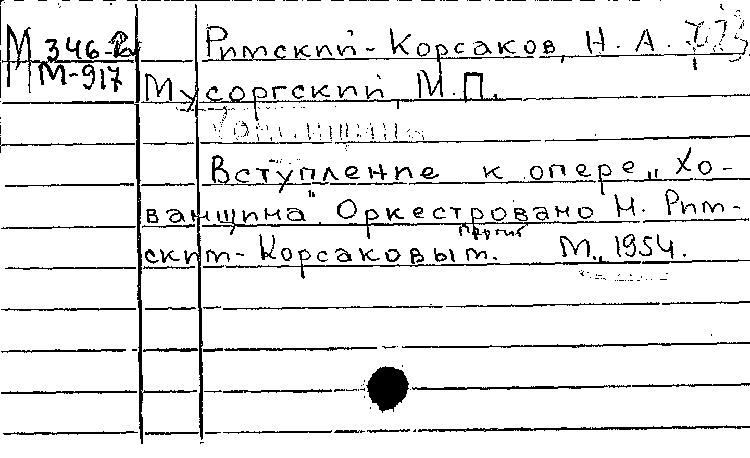 М 346-
М-917
Римский-Корсаков, Н. А.
Мусоргский, М.П.
Вступление к опере „Хо-
ванщина". Оркестровано Н. Рим-
ским-Корсаковым. М., 1954.